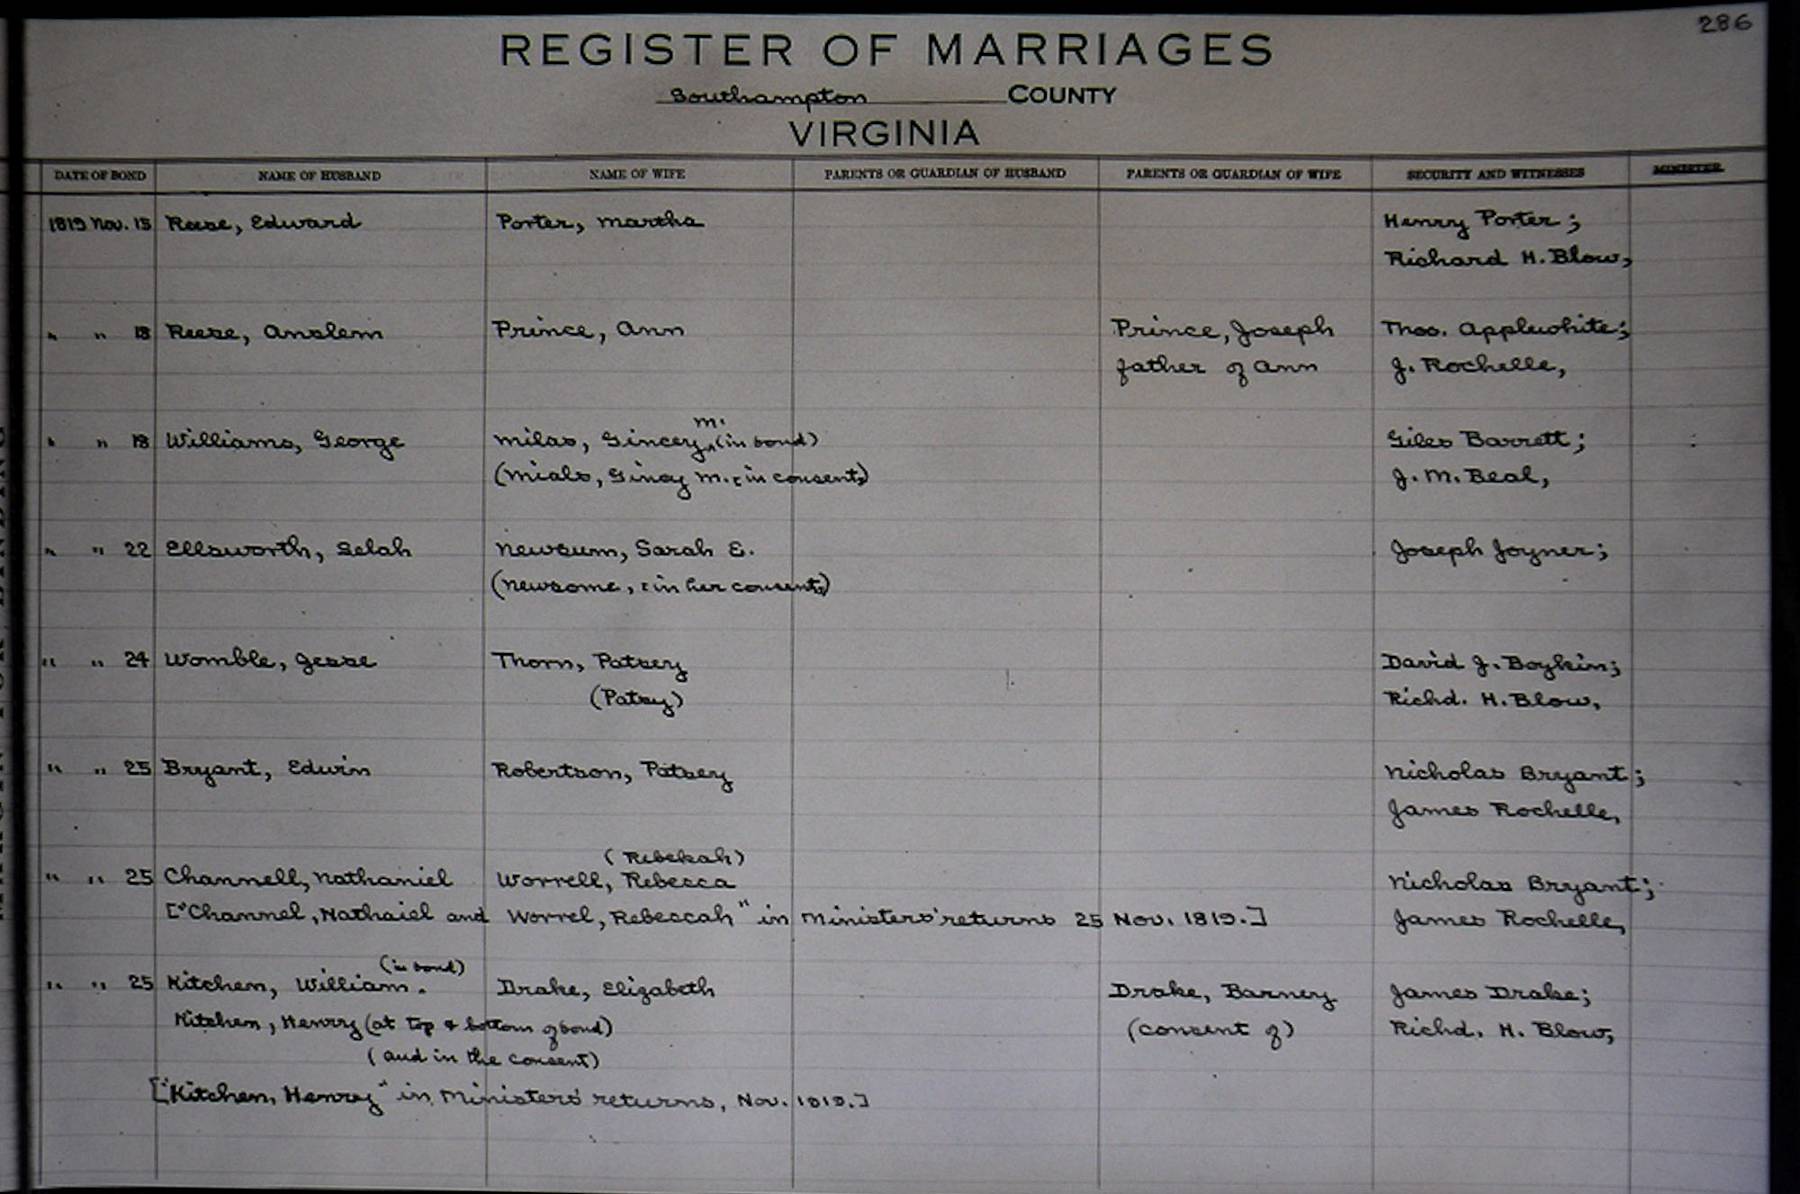 286
REGISTER OF MARRIAGES
Southampton COUNTY
VIRGINIA
DATE OF BOND NAME OF HUSBAND NAME OF WIFE PARENTS OR GUARDIAN OF HUSBAND PARENTS OR GUARDIAN OF WIFE SECURITY AND WITNESSES MINISTER
1819 Nov. 15 Reese, Edward Porter, Martha Henry Porter;
Richard H. Blow,
" " 18 Reese, Anslem Prince, Ann Prince, Joseph Thos. Applewhite;
father of Ann J. Rochelle,
M.
" " 18 Williams, George Milas, Gincey ^ (in bond) Giles Barrett;
(Mials, Gincy M. : in consent,) J. M. Beal,
" " 22 Ellsworth, Selah Newsum, Sarah E. Joseph Joyner;
(Newsome, : in her consent,)
" " 24 Womble, Jesse Thorn, Patsey David J. Boykin;
(Patsy) Richd. H. Blow,
" " 25 Bryant, Edwin Robertson, Patsey Nicholas Bryant;
James Rochelle,
(Rebekah)
" " 25 Channell, Nathaniel Worrell, Rebecca Nicholas Bryant;
["Channel, Nathaiel and Worrel, Rebeccah" in Ministers' returns 25 Nov. 1819.] James Rochelle,
(in bond)
" " 25 Kitchen, William. Drake, Elizabeth Drake, Barney James Drake;
Kitchen, Henry (at top & bottom of bond) (consent of) Richd. H. Blow,
(and in the consent)
["Kitchen, Henry" in Ministers' returns, Nov. 1819.]